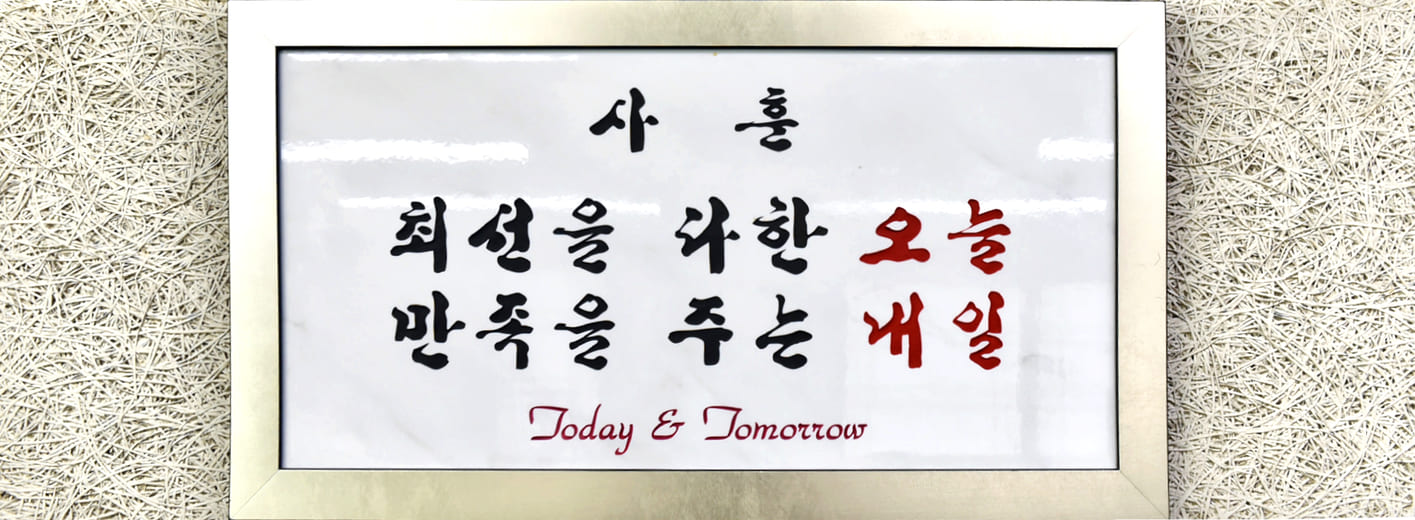 사 훈
최선을 다한 오늘
만족을 주는 내일
Today & Tomorrow